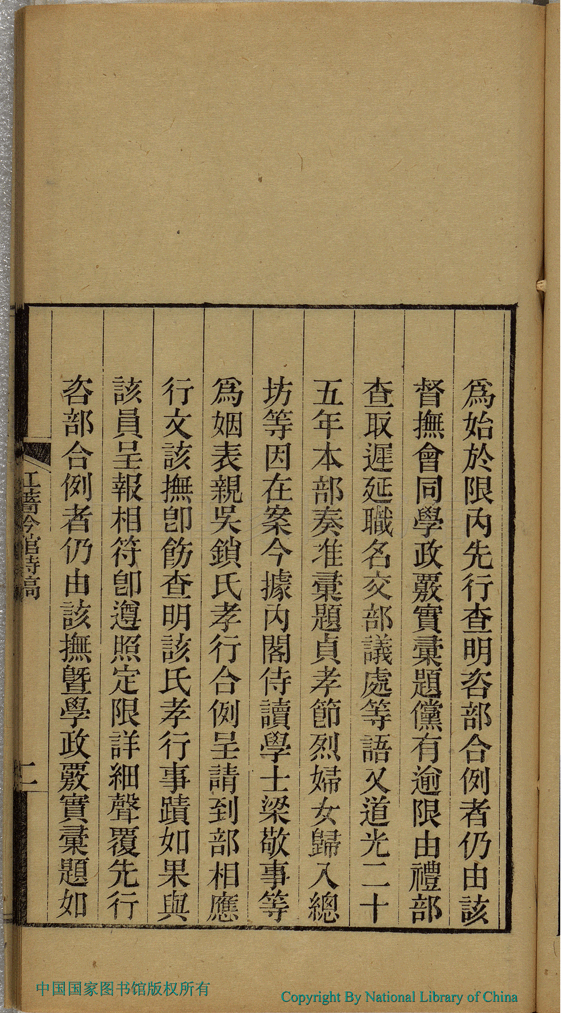 爲始於限內先行查明咨部合例者仍由該
督撫會同學政覈實彙題儻有逾限由禮部
查取遲延職名交部議處等語又道光二十
五年本部奏准彙題貞孝節烈婦女歸入總
坊等因在案今據內閣侍讀學士梁敬事等
爲姻表親吳鎖氏孝行合例呈請到部相應
行文該撫卽飭查明該氏孝行事蹟如果與
該員呈報相符卽遵照定限詳細聲覆先行
咨部合例者仍由該撫曁學政覈實彙題如
吟館詩高
二
中国国家图书馆版权所有
Copyright By National Library of China